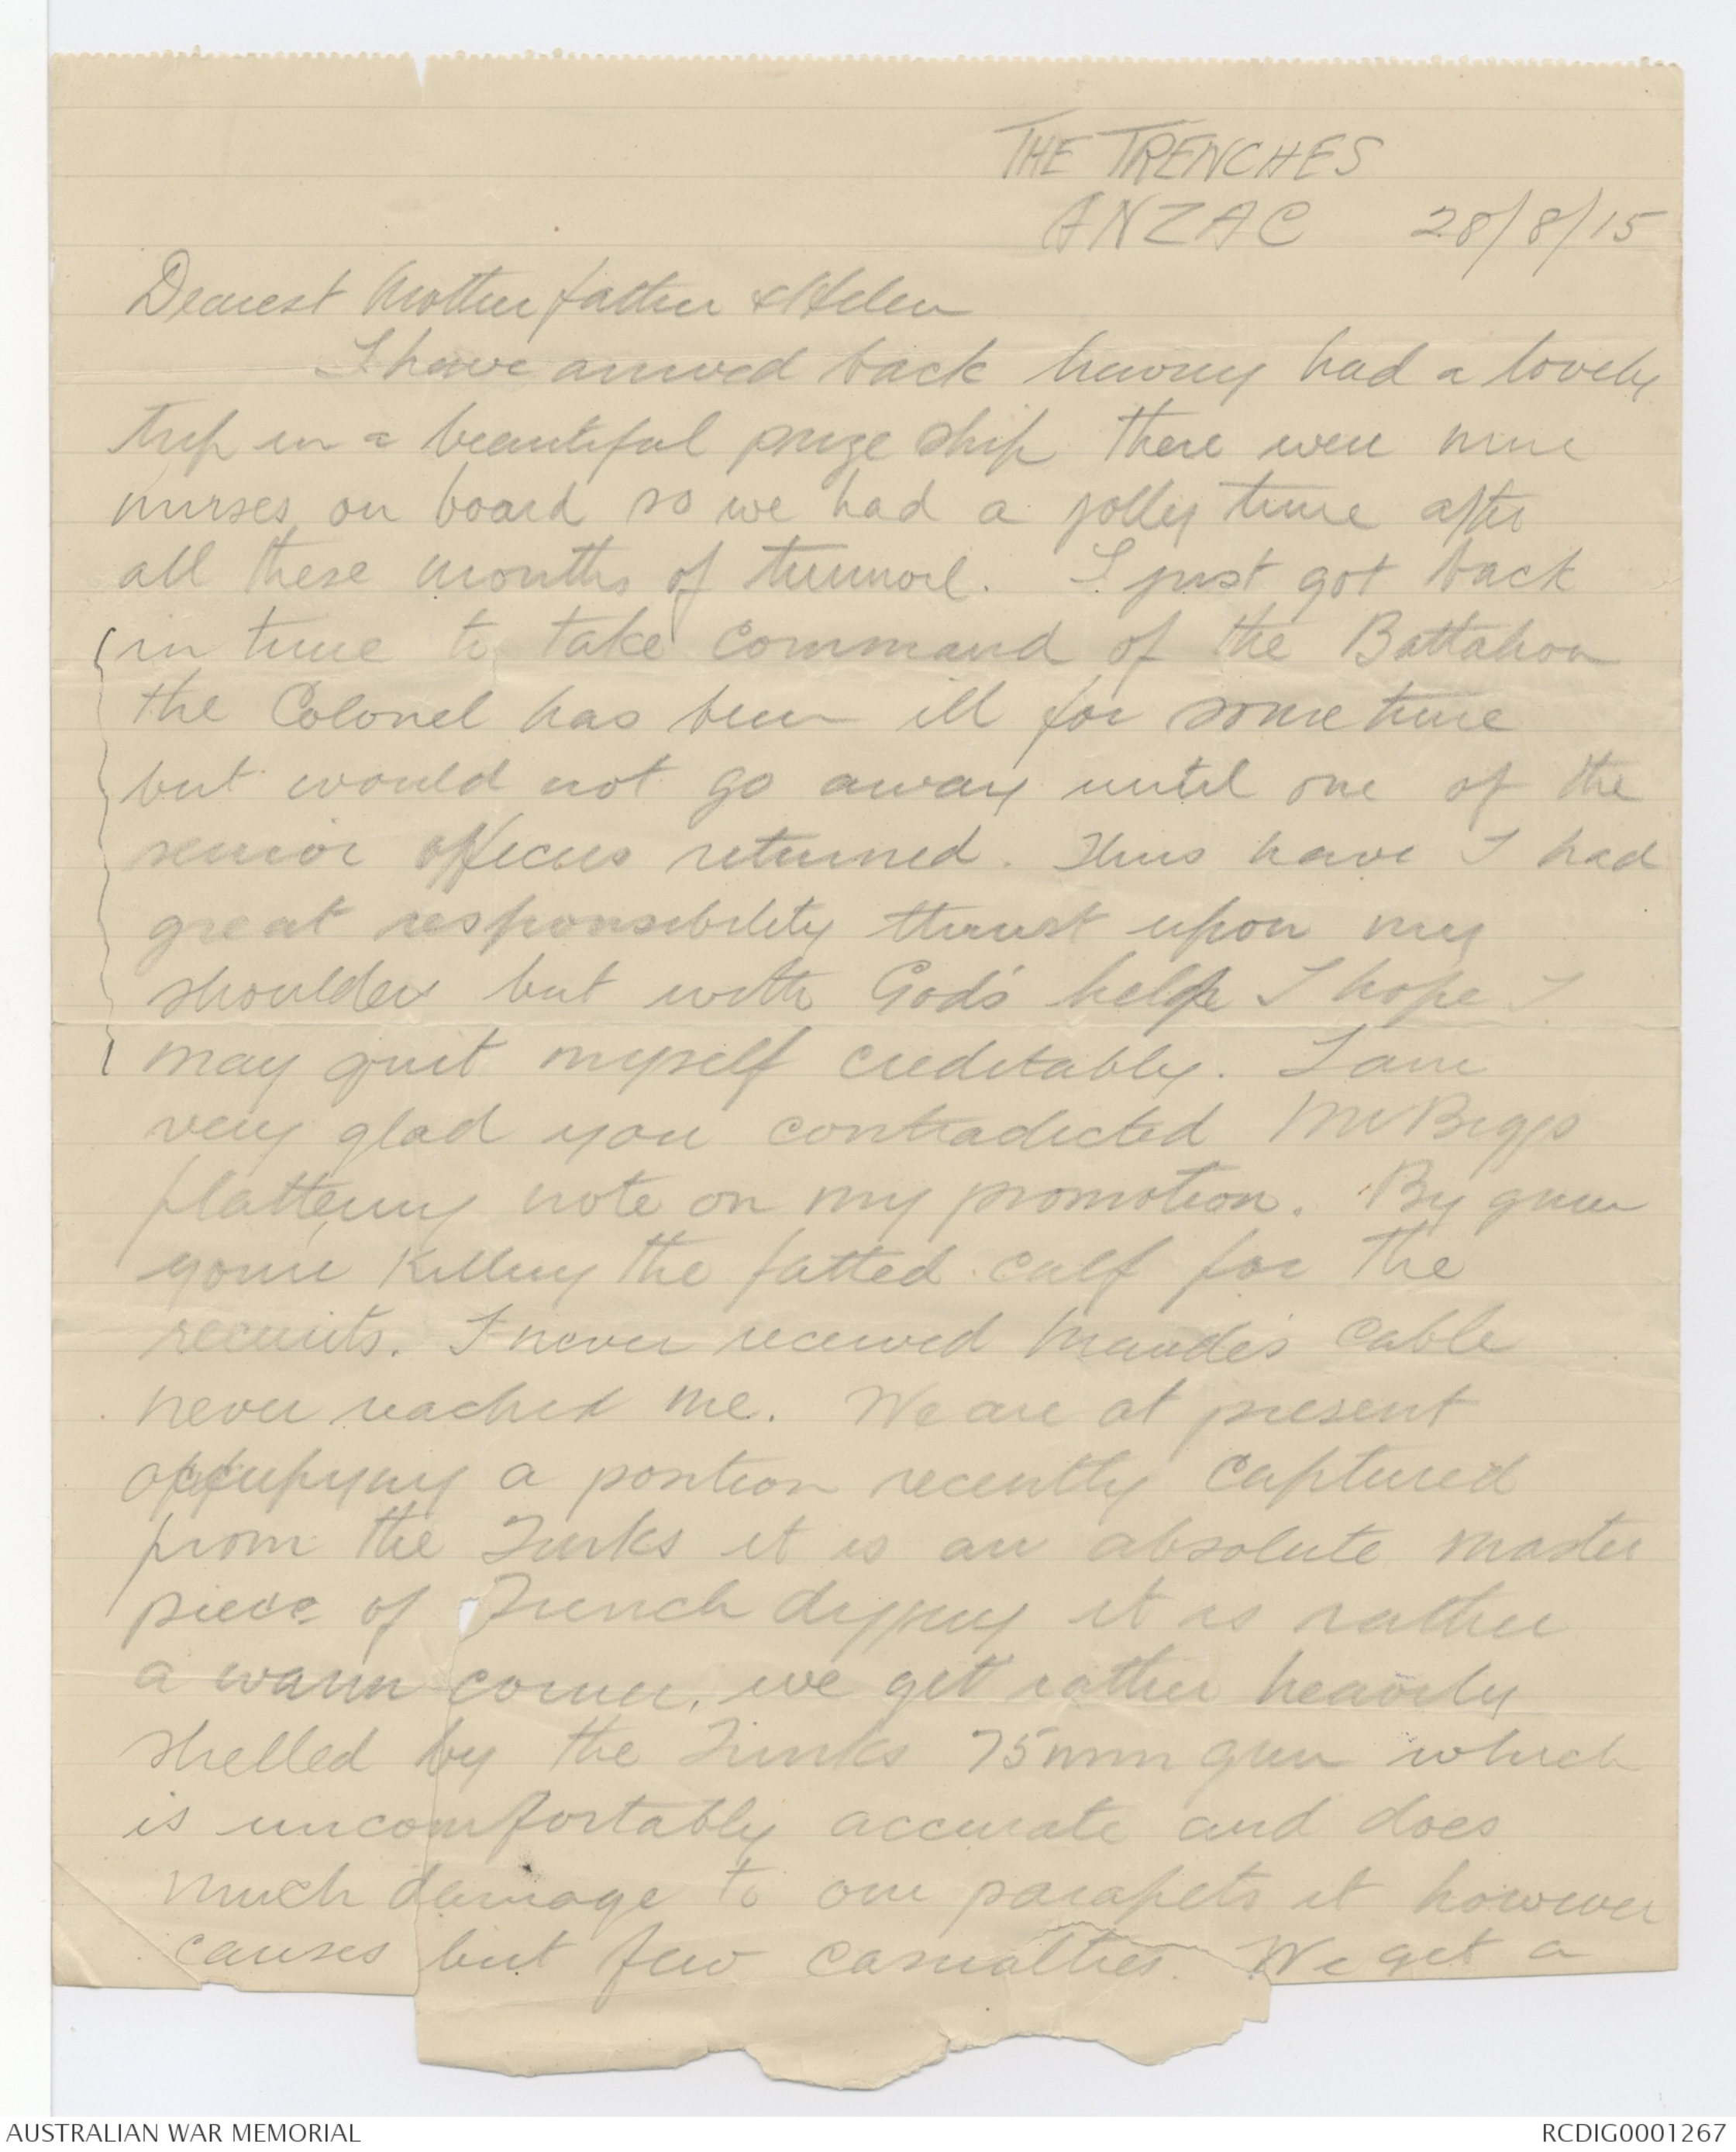 THE TRENCHES
ANZAC 28/8/15
Dearest Mother father & Helen
I have arrived back having had a lovely
trip in a beautiful prize ship there were nine
nurses on board so we had a jolly time after
all these months of turmoil. I just got back
in time to take command of the Battalion
the Colonel has been ill for some time
but would not go away until one of the
senior officers returned. Thus have I had
great responsibility thrust upon my
shoulders but with God's help I hope I
may quit myself creditably. I am
very glad you contradicted Mr Biggs
flattering note on my promotion. By gum
your killing the fatted calf for the
recruits. I never received Maude's cable
never reached me. We are at present
occupying a position recently captured
from the Turks it is an absolute master
piece of Trench digging it is rather
a warm corner, we get rather heavily
shelled by the Turks 75mm gun which
is uncomfortably accurate and does
much damage to our parapets it however
causes but few casualties. We get a
AUSTRALIAN WAR MEMORIAL
RCDIG0001267